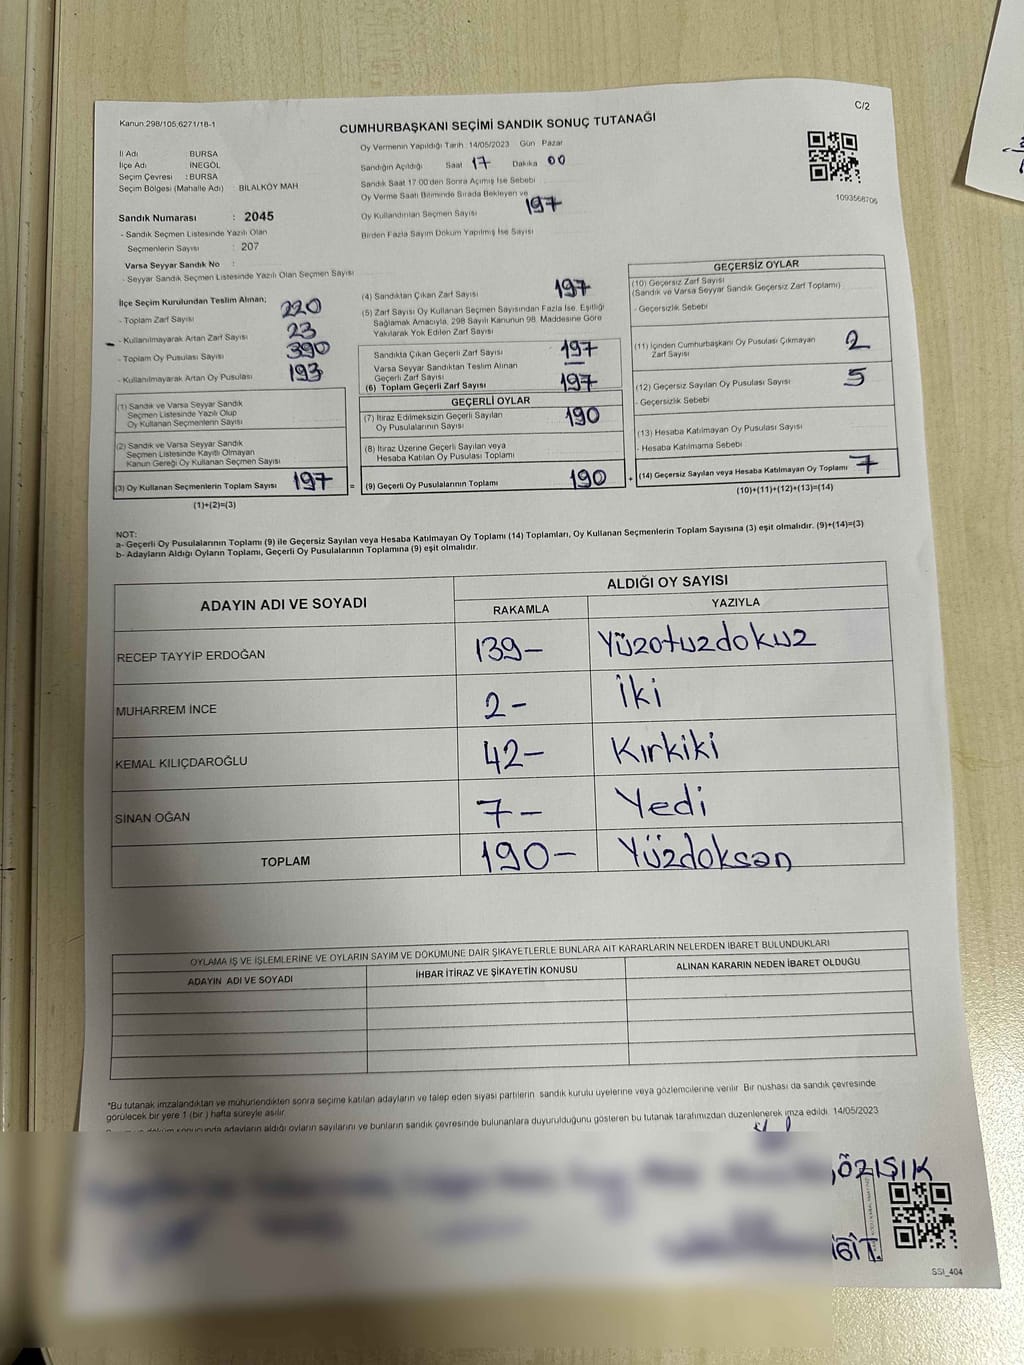 C/2
Kanun:298/105,6271/18-1
CUMHURBAŞKANI SEÇİMİ SANDIK SONUÇ TUTANAĞI
İl Adı BURSA
İlçe Adı İNEGÖL
Seçim Çevresi : BURSA
Seçim Bölgesi (Mahalle Adı) : BİLALKÖY MAH
Sandık Numarası : 2045
- Sandık Seçmen Listesinde Yazılı Olan
Seçmenlerin Sayısı : 207
Varsa Seyyar Sandık No :
- Seyyar Sandık Seçmen Listesinde Yazılı Olan Seçmen Sayısı
Oy Vermenin Yapıldığı Tarih : 14/05/2023 Gün Pazar
Sandığın Açıldığı Saat 17 Dakika 00
Sandık Saat 17:00'den Sonra Açımış İse Sebebi
Oy Verme Saati Bitiminde Sırada Bekleyen ve
Oy Kullandırılan Seçmen Sayısı 197
Birden Fazla Sayım Döküm Yapılmış İse Sayısı
1093568706
İlçe Seçim Kurulundan Teslim Alınan;
- Toplam Zarf Sayısı 220
- Kullanılmayarak Artan Zarf Sayısı 23
- Toplam Oy Pusulası Sayısı 390
- Kullanılmayarak Artan Oy Pusulası 193
(1) Sandık ve Varsa Seyyar Sandık
Seçmen Listesinde Yazılı Olup
Oy Kullanan Seçmenlerin Sayısı
(2) Sandık ve Varsa Seyyar Sandık
Seçmen Listesinde Kayıtlı Olmayan
Kanun Gereği Oy Kullanan Seçmen Sayısı
(3) Oy Kullanan Seçmenlerin Toplam Sayısı 197 =
(1)+(2)=(3)
(4) Sandıktan Çıkan Zarf Sayısı 197
(5) Zarf Sayısı Oy Kullanan Seçmen Sayısından Fazla İse, Eşitliği
Sağlamak Amacıyla, 298 Sayılı Kanunun 98. Maddesine Göre
Yakılarak Yok Edilen Zarf Sayısı
Sandıkta Çıkan Geçerli Zarf Sayısı 197
Varsa Seyyar Sandıktan Teslim Alınan
Geçerli Zarf Sayısı
(6) Toplam Geçerli Zarf Sayısı 197
GEÇERLİ OYLAR
(7) İtiraz Edilmeksizin Geçerli Sayılan
Oy Pusulalarının Sayısı 190
(8) İtiraz Üzerine Geçerli Sayılan veya
Hesaba Katılan Oy Pusulası Toplamı
(9) Geçerli Oy Pusulalarının Toplamı 190 +
GEÇERSİZ OYLAR
(10) Geçersiz Zarf Sayısı
(Sandık ve Varsa Seyyar Sandık Geçersiz Zarf Toplamı)
- Geçersizlik Sebebi
(11) İçinden Cumhurbaşkanı Oy Pusulası Çıkmayan
Zarf Sayısı 2
(12) Geçersiz Sayılan Oy Pusulası Sayısı 5
- Geçersizlik Sebebi
(13) Hesaba Katılmayan Oy Pusulası Sayısı
- Hesaba Katılmama Sebebi
(14) Geçersiz Sayılan veya Hesaba Katılmayan Oy Toplamı 7
(10)+(11)+(12)+(13)=(14)
NOT:
a- Geçerli Oy Pusulalarının Toplamı (9) ile Geçersiz Sayılan veya Hesaba Katılmayan Oy Toplamı (14) Toplamları, Oy Kullanan Seçmenlerin Toplam Sayısına (3) eşit olmalıdır. (9)+(14)=(3)
b- Adayların Aldığı Oyların Toplamı, Geçerli Oy Pusulalarının Toplamına (9) eşit olmalıdır.
ADAYIN ADI VE SOYADI ALDIĞI OY SAYISI
RAKAMLA YAZIYLA
RECEP TAYYİP ERDOĞAN 139- Yüzotuzdokuz
MUHARREM İNCE 2- İki
KEMAL KILIÇDAROĞLU 42- Kırkiki
SİNAN OĞAN 7- Yedi
TOPLAM 190- Yüzdoksan
OYLAMA İŞ VE İŞLEMLERİNE VE OYLARIN SAYIM VE DÖKÜMÜNE DAİR ŞİKAYETLERLE BUNLARA AİT KARARLARIN NELERDEN İBARET BULUNDUKLARI
ADAYIN ADI VE SOYADI İHBAR İTİRAZ VE ŞİKAYETİN KONUSU ALINAN KARARIN NEDEN İBARET OLDUĞU
*Bu tutanak imzalandıktan ve mühürlendikten sonra seçime katılan adayların ve talep eden siyasi partilerin sandık kurulu üyelerine veya gözlemcilerine verilir. Bir nüshası da sandık çevresinde
görülecek bir yere 1 (bir ) hafta süreyle asılır.
adayların aldığı oyların sayılarını ve bunların sandık çevresinde bulunanlara duyurulduğunu gösteren bu tutanak tarafımızdan düzenlenerek imza edildi. 14/05/2023
ÖZIŞIK
İĞİT
SSI_404